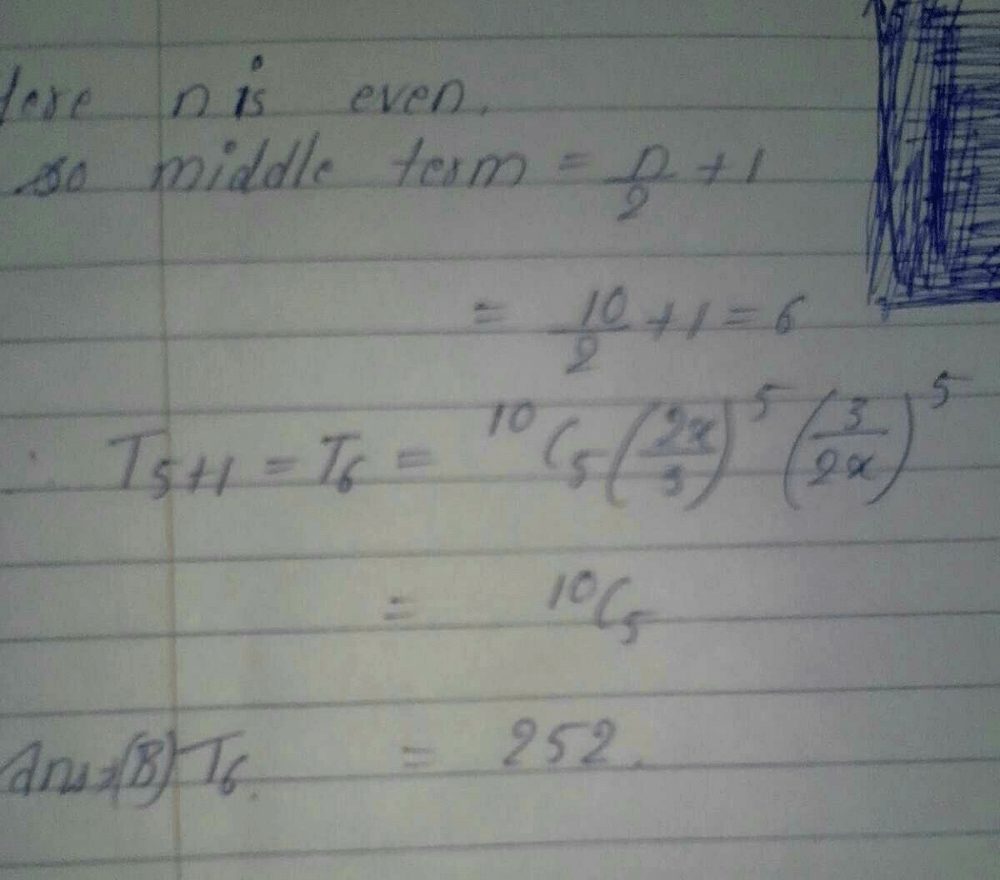 Here n is even.
so middle term = n/2 + 1
= 10/2 + 1 = 6
∴ T₅₊₁ = T₆ = ¹⁰C₅ (2x/3)⁵ (3/2x)⁵
= ¹⁰C₅
Ans=(B) T₆. = 252.